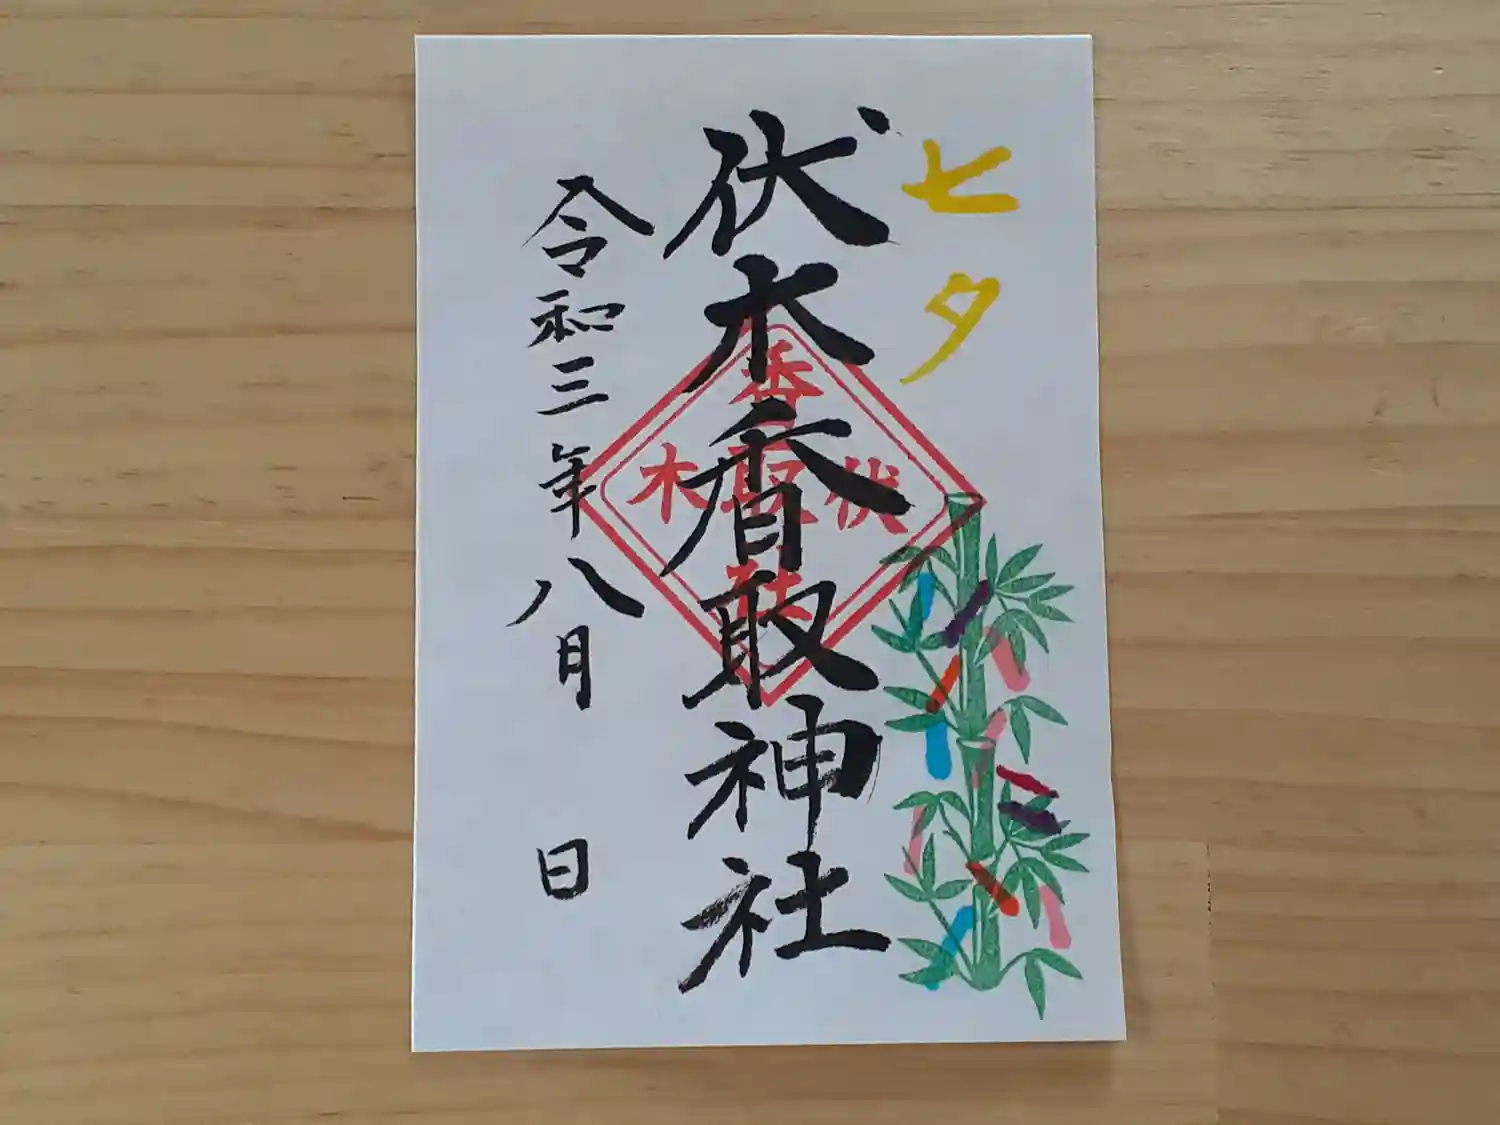 七夕
伏木香取神社
伏木
香取社
令和三年八月 日